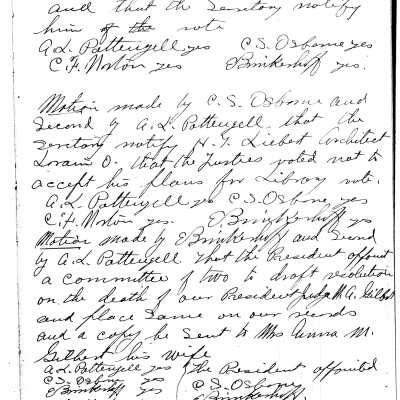 and that the Secretary notify
him of the vote
A.L. Pattengell yes C.S. Osborne yes
C.H. Norton yes Brinkerhoff yes.
Motion made by C.S. Osborne and
Second by A.L. Pattengell. that the
Secretary notify H.T. Liebert Architect
Lorain O. that the Trusties voted not to
accept his plans for Library vote.
A.L. Pattengell yes C.S. Osborne yes
C.H. Norton yes. Brinkerhoff yes
Motion made by Brinkerhoff and Second
by A.L. Pattengell that the President appoint
a committee of two to draft resolution
on the death of our President Judge M.A.
and place Same on our records
and a copy be Sent to Mrs Anna M.
his wife
A.L. Pattengell yes (the President appointed
C.S. Osborne yes C.S. Osborne
Brinkerhoff yes Brinkerhoff.